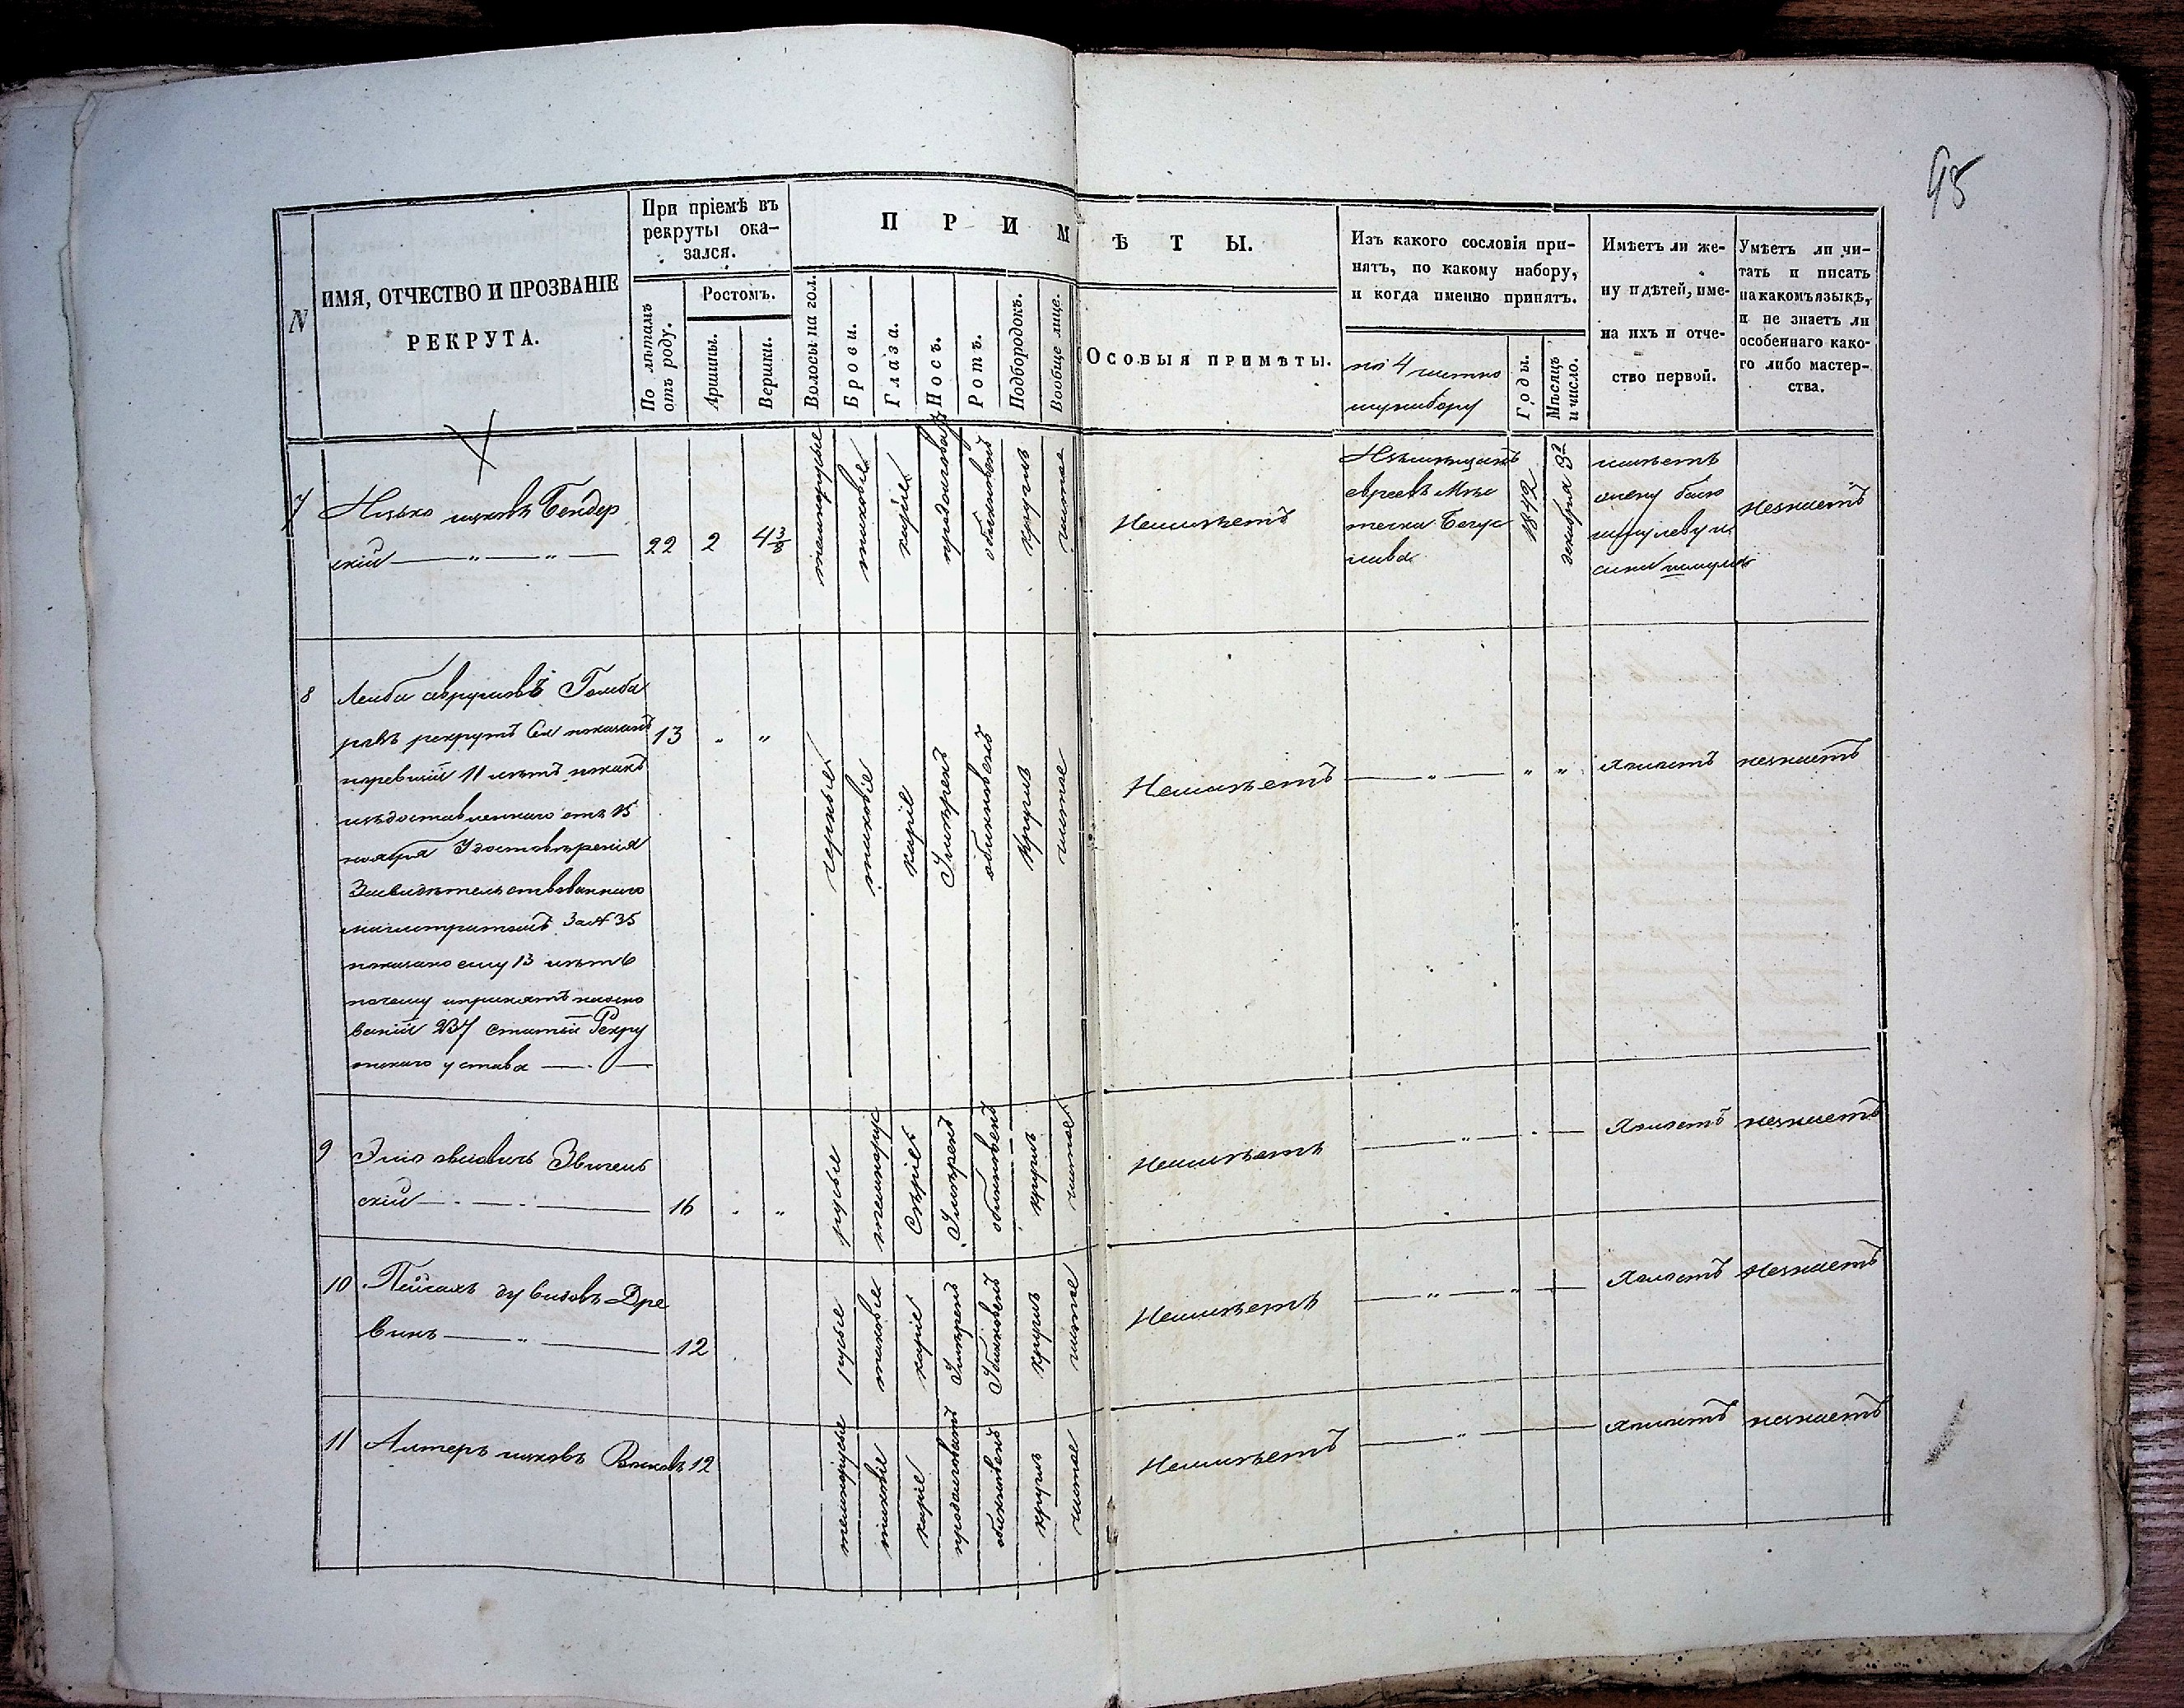 95
N
ИМЯ, ОТЧЕСТВО И ПРОЗВАНІЕ
РЕКРУТА.
При пріемѣ въ
рекруты ока-
зался.
По лѣтамъ
отъ роду.
Ростомъ.
Аршины.
Вершки.
ПРИМѢТЫ.
Волосы на гол.
Брови.
Глаза.
Носъ.
Ротъ.
Подбородокъ.
Вообще лице.
Особыя примѣты.
Изъ какого сословія при-
нятъ, по какому набору,
и когда именно принятъ.
по 4 частно
му набору
Годы.
Мѣсяцъ
и число.
Имѣетъ ли же-
ну и дѣтей, име-
на ихъ и отче-
ство первой.
Умѣетъ ли чи-
тать и писать
на какомъ языкѣ,
и не знаетъ ли
особеннаго како-
го либо мастер-
ства.
7
ицковъ Бендер
скій
22
2
4 3/8
темнорусые
таковые
каріе
продолговат
обыкновенъ
круглъ
чистое
Неимѣетъ
Изъ мѣщанъ
евреевъ Мѣс
течка Богус
лава
1842
декабря 3
имѣетъ
жену
сына
незнаетъ
8
Лейба
рекрутъ Сей показанъ
11 лѣтъ
отъ 15
ноября Удостовѣренія
Засвидѣтельствованнаго
магистратомъ За № 35
показано ему 13 лѣтъ
почему и принятъ на осно
ваніи статьи Рекру
тскаго устава
13
черные
таковые
каріе
Умѣренъ
обыкновенъ
Круглъ
чистое
Неимѣетъ
холостъ
незнаетъ
9
скій
16
русые
темнорус
Сѣрые
Умѣренъ
обыкновенъ
круглъ
чистое
Неимѣетъ
Холостъ
незнаетъ
10
Пейсахъ Дувидовъ Дре
винъ
12
русые
таковые
каріе
Умѣренъ
Обыкновенъ
круглъ
чистое
Неимѣетъ
Холостъ
Незнаетъ
11
Алтеръ ицковъ
12
темнорусые
таковые
каріе
продолговатъ
обыкновенъ
круглъ
чистое
Неимѣетъ
холостъ
незнаетъ